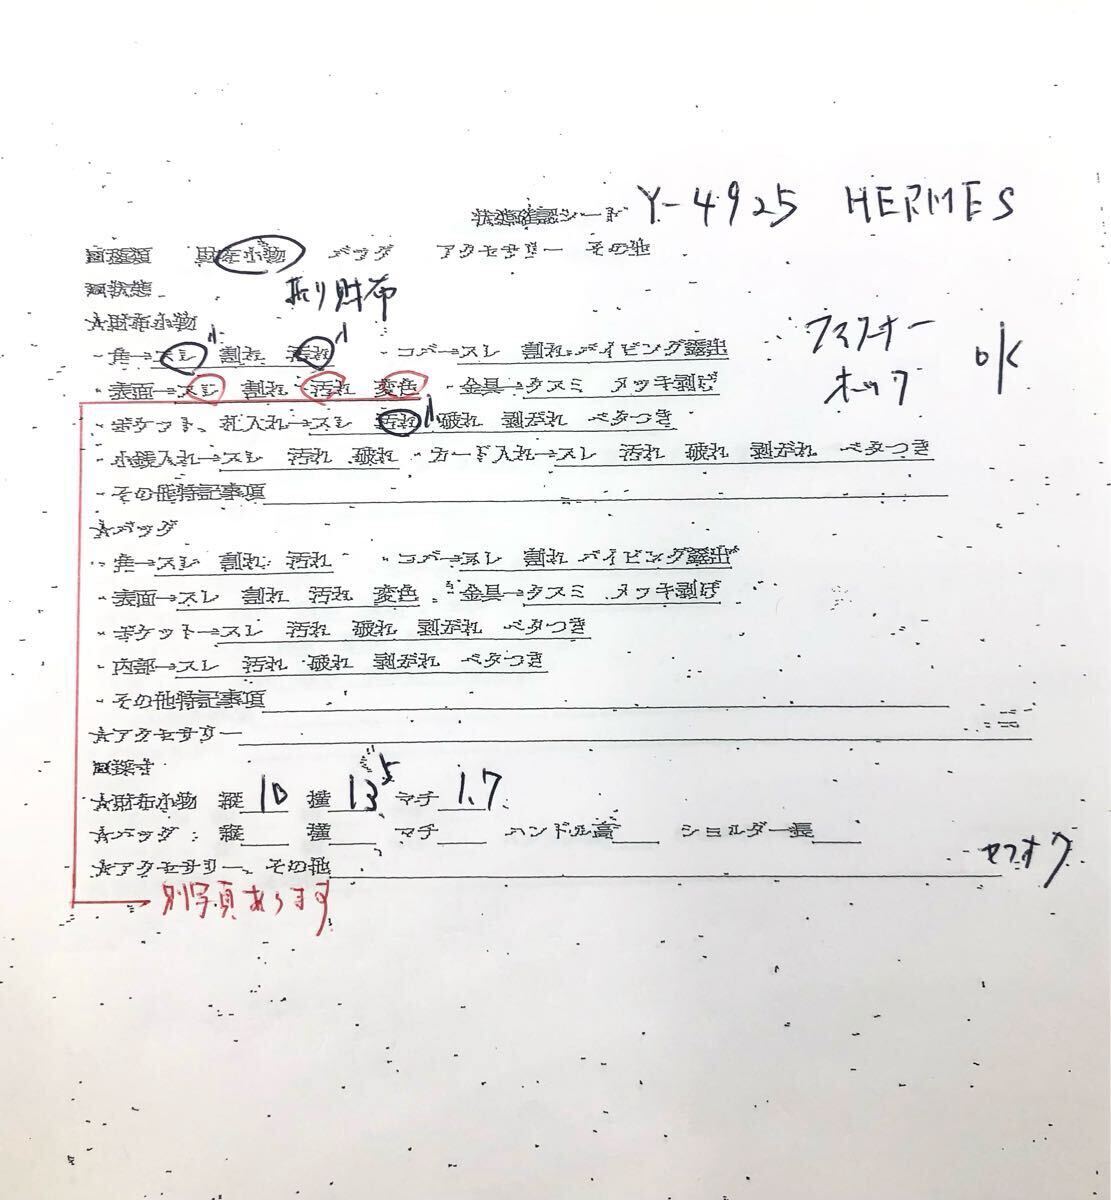 状態確認シート Y-4925 HERMES
■種類 財布小物 バッグ アクセサリー その他
■状態 折り財布
★財布小物 ファスナー ホック OK
・角→スレ 割れ 汚れ ・コバ→スレ 割れ パイピング露出
小 小
・表面→スレ 割れ 汚れ 変色 ・金具→クスミ メッキ剥げ
・ポケット、札入れ→スレ 汚れ 破れ 剥がれ ベタつき
小
・小銭入れ→スレ 汚れ 破れ ・カード入れ→スレ 汚れ 破れ 剥がれ ベタつき
・その他特記事項
★バッグ
・角→スレ 割れ 汚れ ・コバ→スレ 割れ パイピング露出
・表面→スレ 割れ 汚れ 変色 ・金具→クスミ メッキ剥げ
・ポケット→スレ 汚れ 破れ 剥がれ ベタつき
・内部→スレ 汚れ 破れ 剥がれ ベタつき
・その他特記事項
★アクセサリー
■採寸
★財布小物 縦 10 横 13.5 マチ 1.7
★バッグ:縦 横 マチ ハンドル高 ショルダー長
★アクセサリー、その他
別写真あります